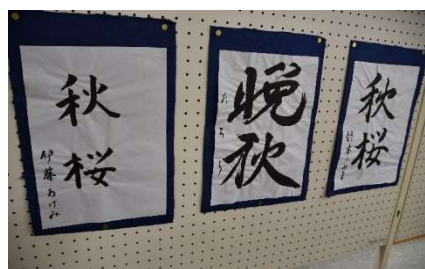 秋桜
伊藤あけみ
晩秋
秋桜